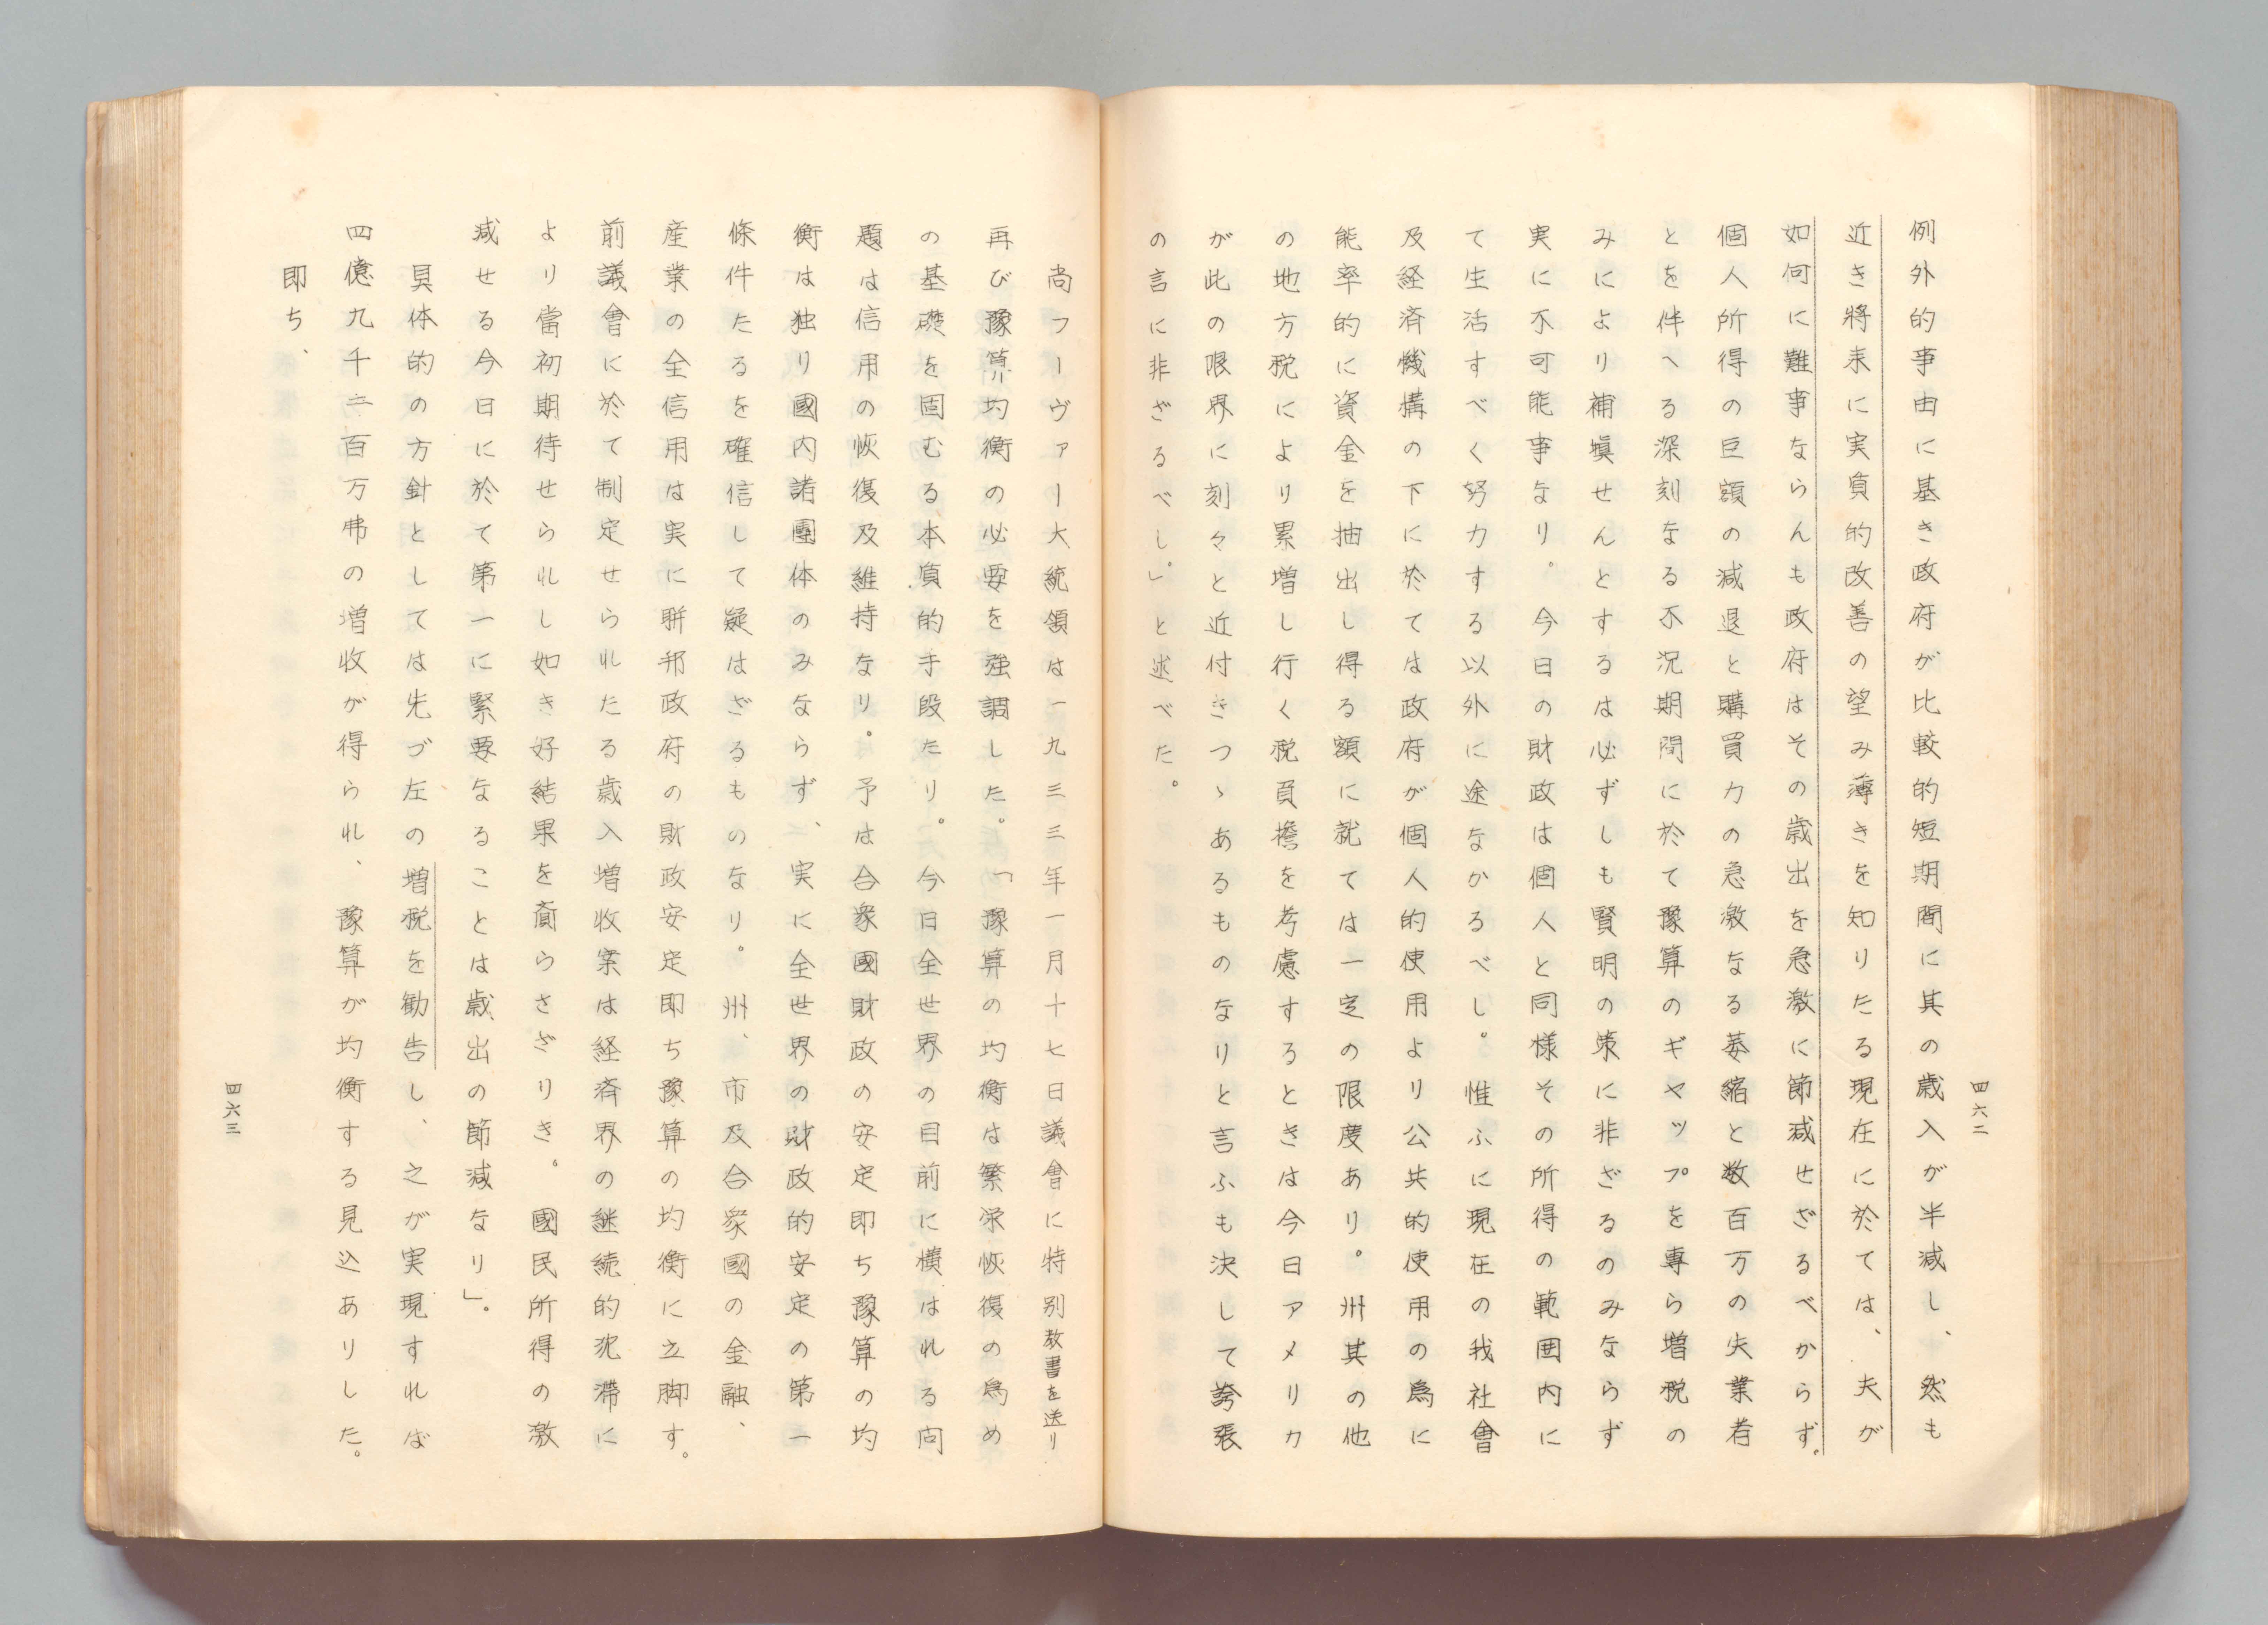 四六二
例外的事由に基き政府が比較的短期間に其の歳入が半減し、然も
近き將来に実質的改善の望み薄きを知りたる現在に於ては、夫が
如何に難事ならんも政府はその歳出を急激に節減せざるべからず。
個人所得の巨額の減退と購買力の急激なる萎縮と数百万の失業者
とを伴へる深刻なる不況期間に於て豫算のギャップを専ら増税の
みにより補塡せんとするは必ずしも賢明の策に非ざるのみならず
実に不可能事なり。今日の財政は個人と同様その所得の範囲内に
て生活すべく努力する以外に途なかるべし。惟ふに現在の我社會
及経済機構の下に於ては政府が個人的使用より公共的使用の為に
能率的に資金を抽出し得る額に就ては一定の限度あり。州其の他
の地方税により累増し行く税負擔を考慮するときは今日アメリカ
が此の限界に刻々と近付きつゝあるものなりと言ふも決して誇張
の言に非ざるべし。」と述べた。
尚フーヴァー大統領は一九三三年一月十七日議會に特別教書を送り
再び豫算均衡の必要を強調した。「豫算の均衡は繁栄恢復の為め
の基礎を固むる本質的手段たり。今日全世界の目前に横はれる问
題は信用の恢復及維持なり。予は合衆國財政の安定即ち豫算の均
衡は独り國内諸團体のみならず、実に全世界の財政的安定の第一
條件たるを確信して疑はざるものなり。州、市及合衆國の金融、
産業の全信用は実に聯邦政府の財政安定即ち豫算の均衡に立脚す。
前議會に於て制定せられたる歳入増收案は経済界の継続的沈滞に
より當初期待せられし如き好結果を齎らさざりき。國民所得の激
減せる今日に於て第一に緊要なることは歳出の節減なり」。
具体的の方針としては先づ左の増税を勧告し、之が実現すれば
四億九千二百万弗の増收が得られ、豫算が均衡する見込ありした。
即ち、
四六三